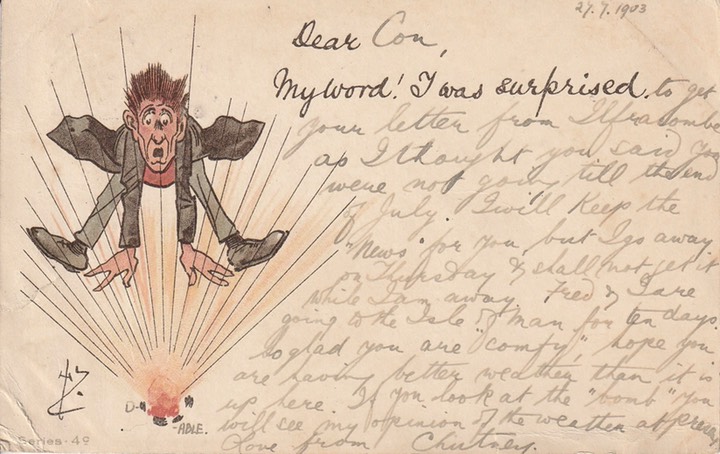 27.7.1903
Dear Con,
My word! I was surprised. to get
your letter from Ilfracombe
as I thought you said you
were not going till the end
of July. I will keep the
"News" for you, but I go away
on Thursday & shall not get it
while I am away. Fred & I are
going to the Isle of Man for ten days.
So glad you are "comfy", hope you
are having better weather than it is
up here. If you look at the "bomb" you
will see my opinion of the weather at present
Love from Chutney.
D-
-ABLE.
Series. 49